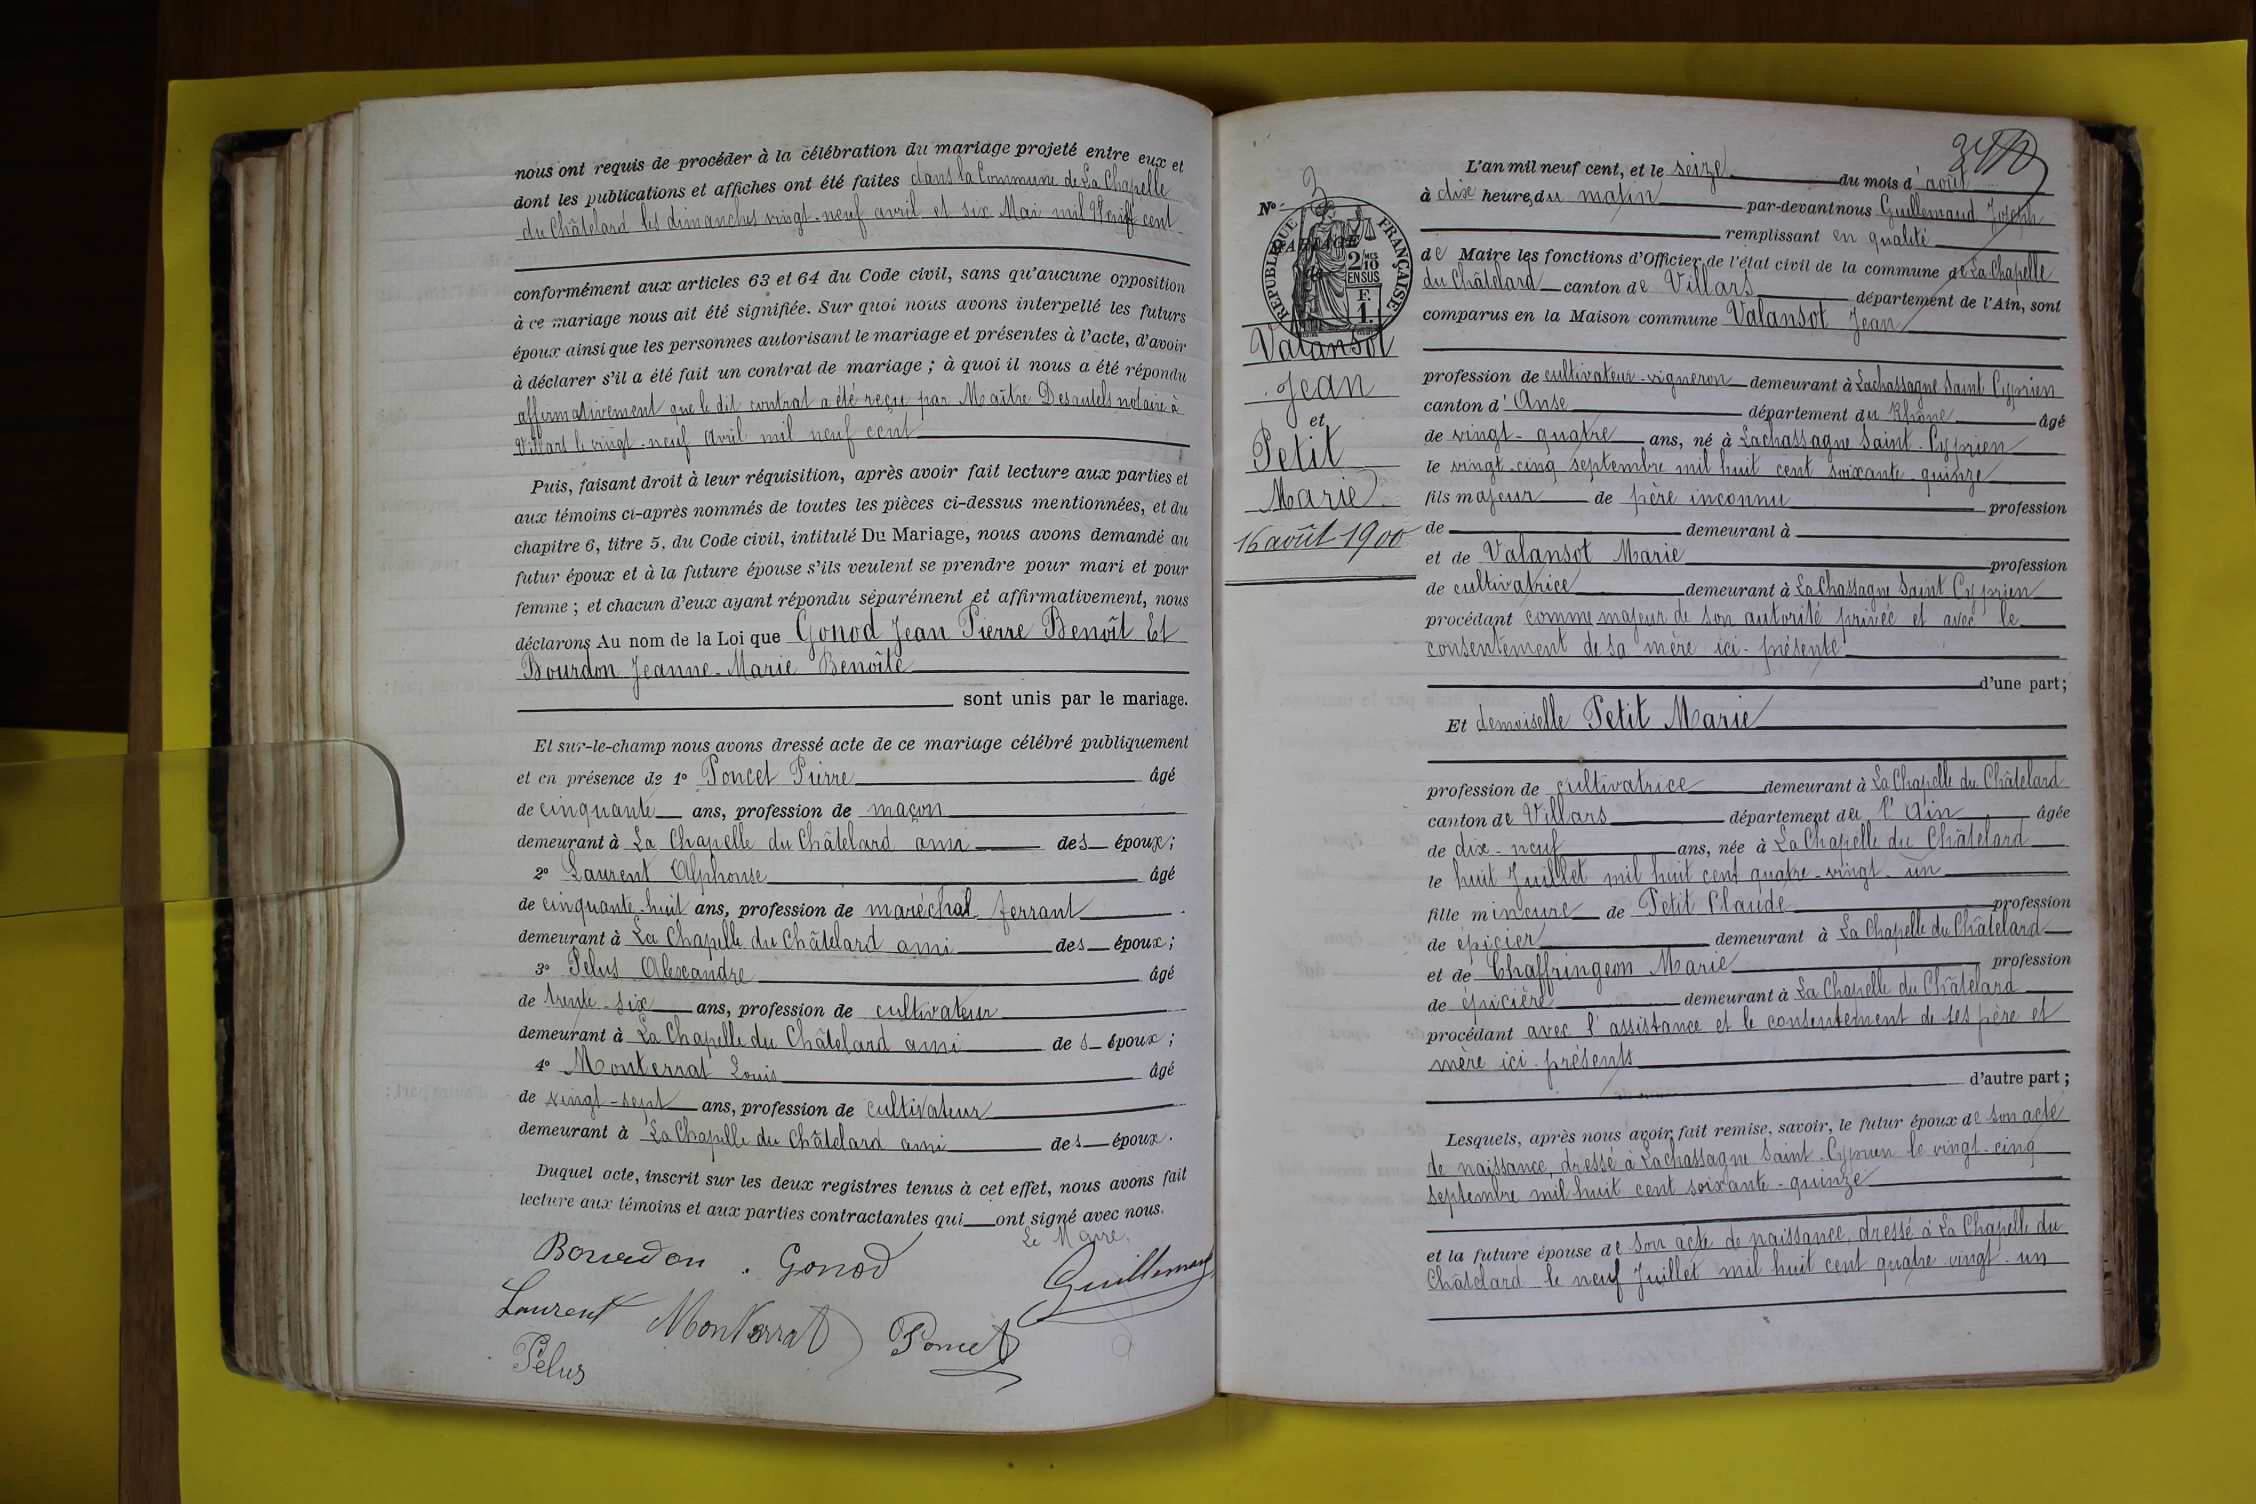 nous ont requis de procéder à la célébration du mariage projeté entre eux et
dont les publications et affiches ont été faites dans la Commune de La Chapelle
du Châtelard les dimanches vingt-neuf avril et six Mai mil Neuf cent
conformément aux articles 63 et 64 du Code civil, sans qu'aucune opposition
à ce mariage nous ait été signifiée. Sur quoi nous avons interpellé les futurs
époux ainsi que les personnes autorisant le mariage et présentes à l'acte, d'avoir
à déclarer s'il a été fait un contrat de mariage ; à quoi il nous a été répondu
affirmativement que le dit contrat a été reçu par Maître Desautels notaire à
Villars le vingt-neuf Avril mil neuf cent
Puis, faisant droit à leur réquisition, après avoir fait lecture aux parties et
aux témoins ci-après nommés de toutes les pièces ci-dessus mentionnées, et du
chapitre 6, titre 5, du Code civil, intitulé Du Mariage, nous avons demandé au
futur époux et à la future épouse s'ils veulent se prendre pour mari et pour
femme ; et chacun d'eux ayant répondu séparément et affirmativement, nous
déclarons Au nom de la Loi que Gonod Jean Pierre Benoît Et
Bourdon Jeanne-Marie Benoîte
sont unis par le mariage.
Et sur-le-champ nous avons dressé acte de ce mariage célébré publiquement
et en présence de 1° Poncet Pierre âgé
de cinquante ans, profession de maçon
demeurant à La Chapelle du Châtelard ami des époux ;
2° Laurent Alphonse âgé
de cinquante-huit ans, profession de maréchal ferrant
demeurant à La Chapelle du Châtelard ami des époux ;
3° Pelus Alexandre âgé
de trente-six ans, profession de cultivateur
demeurant à La Chapelle du Châtelard ami des époux ;
4° Monterrat Louis âgé
de vingt-sept ans, profession de cultivateur
demeurant à La Chapelle du Châtelard ami des époux.
Duquel acte, inscrit sur les deux registres tenus à cet effet, nous avons fait
lecture aux témoins et aux parties contractantes qui ont signé avec nous.
Le Maire,
Bourdon . Gonod Guillemaud
Laurent Monterrat Poncet
Pelus
N° 3
RÉPUBLIQUE FRANÇAISE
MARIAGE
de
2/10 EN SUS
F. 1.
Valansot
Jean
et
Petit
Marie
16 août 1900
L'an mil neuf cent, et le seize du mois d'août
à dix heures du matin par-devant nous Guillemaud Joseph
remplissant en qualité
de Maire les fonctions d'Officier de l'état civil de la commune de La Chapelle
du Châtelard canton de Villars département de l'Ain, sont
comparus en la Maison commune Valansot Jean
profession de cultivateur-vigneron demeurant à Lachassagne Saint Cyprien
canton d'Anse département du Rhône âgé
de vingt-quatre ans, né à Lachassagne Saint-Cyprien
le vingt-cinq septembre mil huit cent soixante-quinze
fils majeur de père inconnu profession
de demeurant à
et de Valansot Marie profession
de cultivatrice demeurant à La Chassagne Saint Cyprien
procédant comme majeur de son autorité privée et avec le
consentement de sa mère ici-présente
d'une part ;
Et demoiselle Petit Marie
profession de cultivatrice demeurant à La Chapelle du Châtelard
canton de Villars département de l'Ain âgée
de dix-neuf ans, née à La Chapelle du Châtelard
le huit Juillet mil huit cent quatre-vingt-un
fille mineure de Petit Claude profession
de épicier demeurant à La Chapelle du Châtelard
et de Chaffringeon Marie profession
de épicière demeurant à La Chapelle du Châtelard
procédant avec l'assistance et le consentement de ses père et
mère ici-présents
d'autre part ;
Lesquels, après nous avoir fait remise, savoir, le futur époux de son acte
de naissance, dressé à Lachassagne Saint-Cyprien le vingt-cinq
septembre mil huit cent soixante-quinze
et la future épouse de son acte de naissance, dressé à La Chapelle du
Châtelard le neuf Juillet mil huit cent quatre-vingt-un